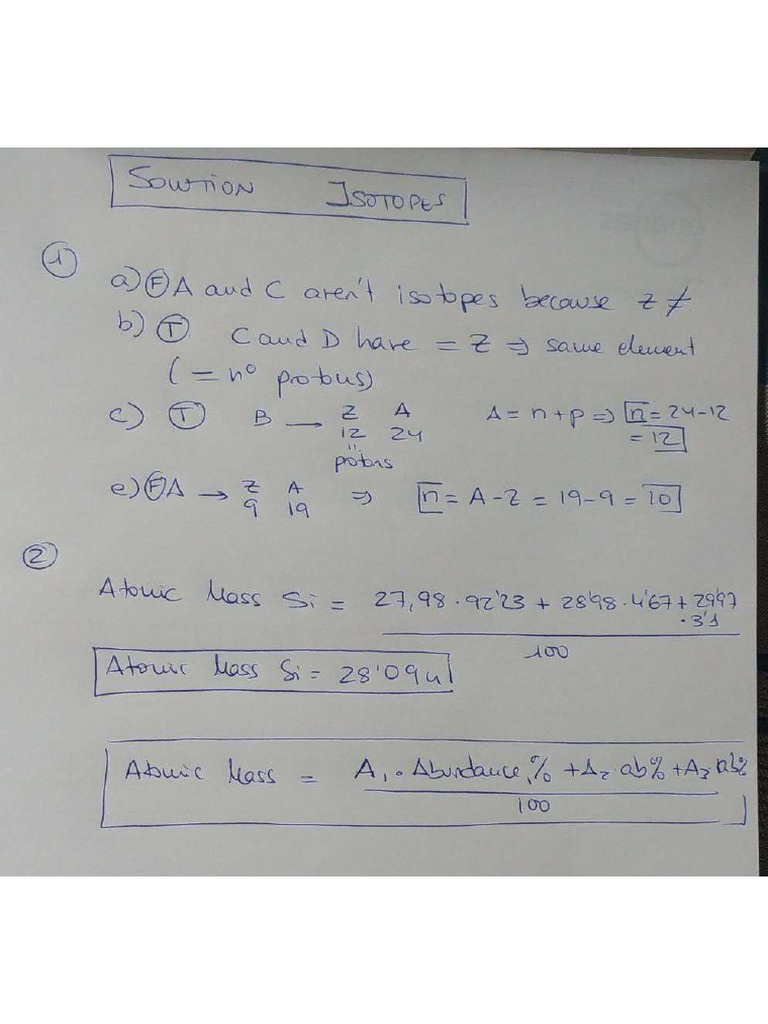 SOLUTION ISOTOPES
1
a) F A and C aren't isotopes because z ≠
b) T C and D have = Z ⇒ same element
(= nº protons)
c) T B → Z A A = n + p ⇒ n = 24-12
12 24 = 12
"
protons
e) F A → Z A ⇒ n = A - Z = 19 - 9 = 10
9 19
2
Atomic Mass Si = 27,98 · 92'23 + 28'98 · 4'67 + 29'97
· 3'1
100
Atomic Mass Si = 28'09 u
Atomic Mass = A1 · Abundance % + A2 · ab% + A3 · ab%
100